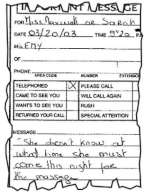 IMPORTANT MESSAGE
FOR Miss Maxwell or Sarah
DATE 03/20/03 TIME 9:20 P.M.
M
OF
PHONE
AREA CODE NUMBER EXTENSION
TELEPHONED X PLEASE CALL
CAME TO SEE YOU WILL CALL AGAIN
WANTS TO SEE YOU RUSH
RETURNED YOUR CALL SPECIAL ATTENTION
MESSAGE
She doesn't know at
what time she must
come this night for
the massage